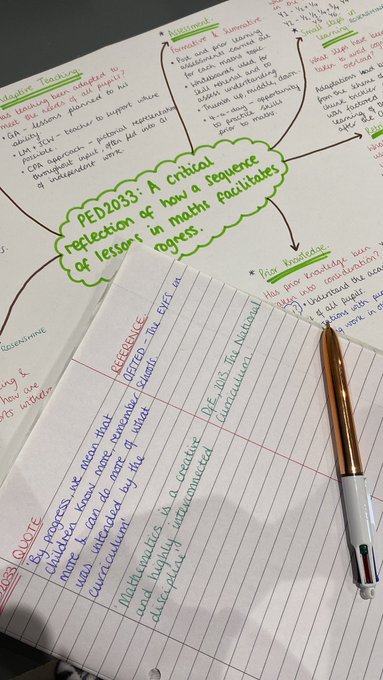 Adaptive Teaching.
teaching been adapted to
meet the needs of all pupils?
• GA - lessons planned to his
ability.
• LM + JCW - teacher to support where
possible.
• CPA approach - pictorial representation
throughout input, often fed into
of independent work.
* Assessment.
Formative & Summative.
• Pre and prior learning
assessments carried out
for each maths topic
• Whiteboards used for
skill rehearsal and to
assess understanding
• Thumbs up, middle, down.
• 4-a-day - opportunity
to practise skills
prior to maths.
* Small steps in
learning
ROSENSHINE
What steps have been
taken to avoid
PED2033: A critical
reflection of how a sequence
of lessons in maths facilitates
progress.
* Prior Knowledge.
Has prior knowledge been
taken into consideration?
Understand the
of all pupils.
ROSENSHINE
how are
QUOTE
REFERENCE
'By progress, we mean that
children know more, remember
more & can do more of what
was intended by the
curriculum'
OFSTED - The EYFS in
Schools.
'Mathematics is a creative
and highly interconnected
discipline'
DfE, 2013. The National
Curriculum